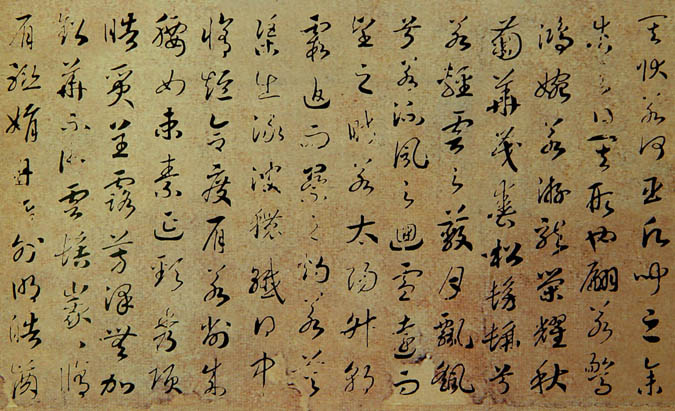 其狀若何臣願聞之余
告之曰其形也翩若驚
鴻婉若游龍榮耀秋
菊華茂春松髣髴兮
若輕雲之蔽月飄颻
兮若流風之迴雪遠而
望之皎若太陽升朝
霞迫而察之灼若芙
蕖出淥波穠纖得中
脩短合度肩若削成
腰如束素延頸秀項
皓質呈露芳澤無加
鉛華不御雲髻峩々脩
眉聯娟丹唇外朗皓齒